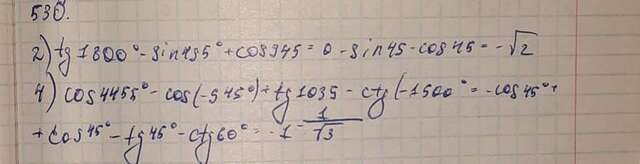 530.
2) tg 1800° - sin 495° + cos 945° = 0 - sin 45 - cos 45 = -√2
4) cos 4455° - cos(-945°) + tg 1035 - ctg(-1500° = -cos 45° +
+ cos 45° - tg 45° - ctg 60° = -1 - 1/√3